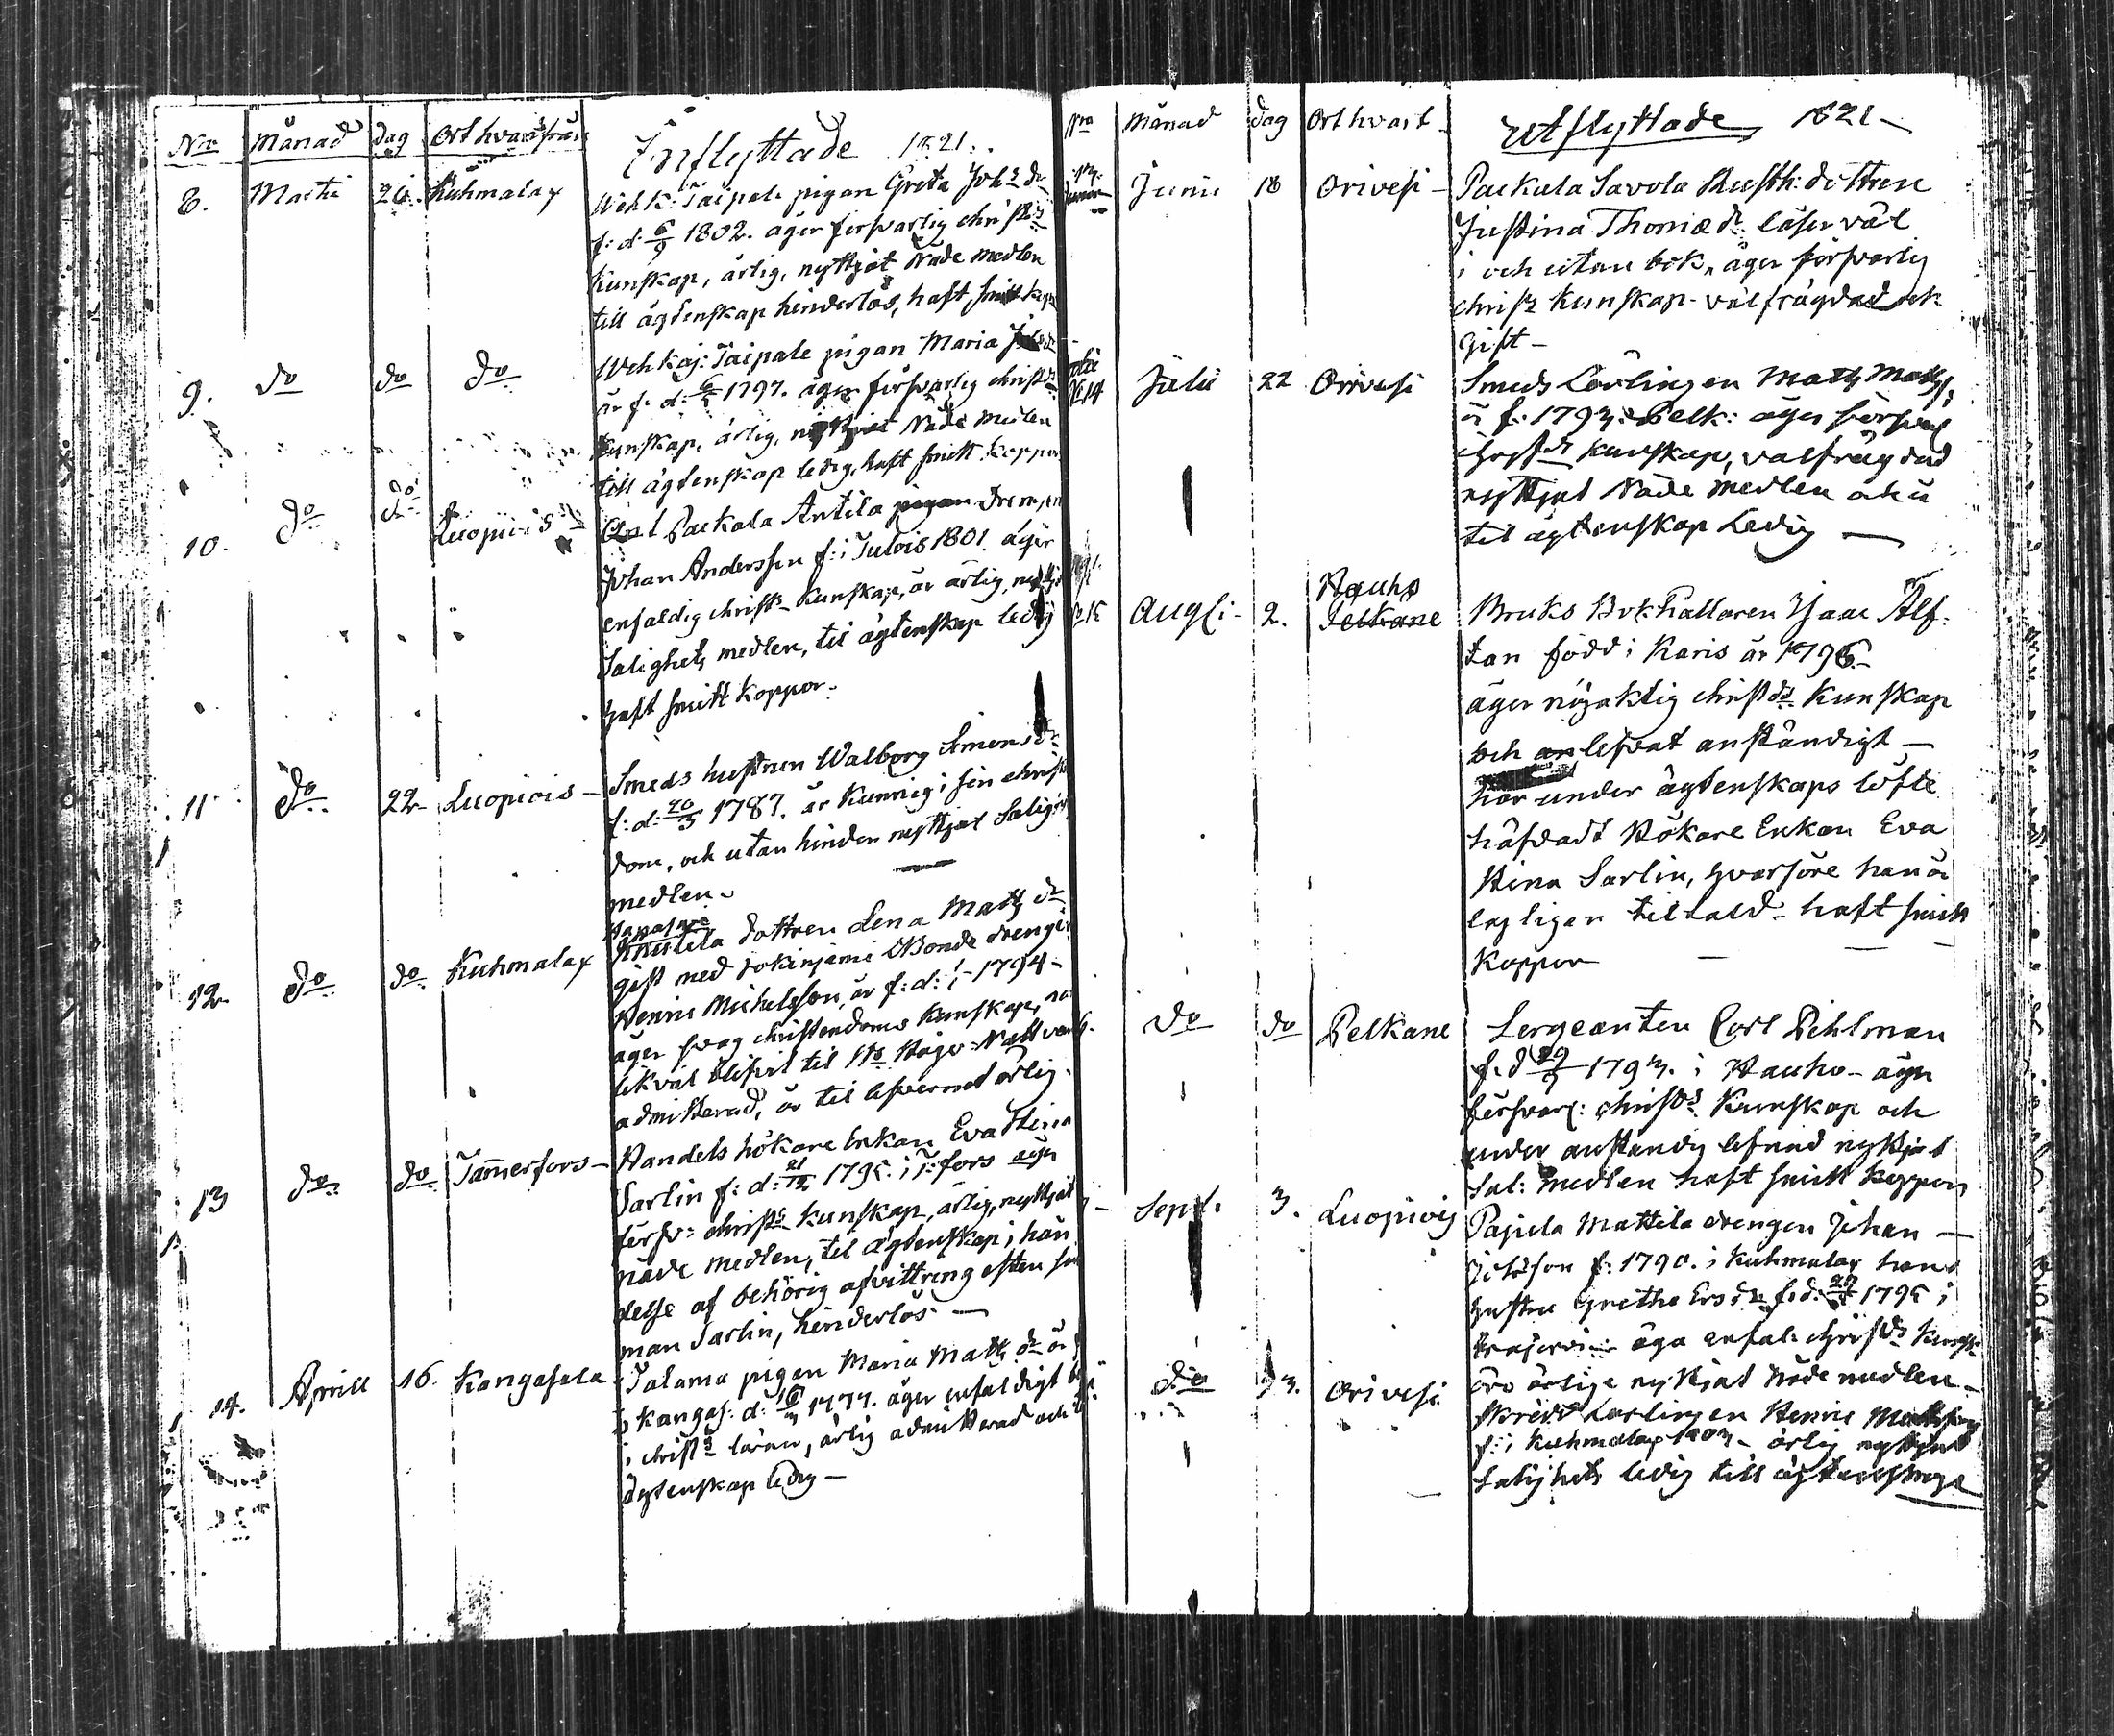 Nro Månad dag Ort hvarifrån
Inflyttade 1821.
8. Martii 26. Kuhmalax
Wehk: Taipale pigan Greta Joh:s dr
f: d: 6/9 1802. äger försvarlig christ:ds
kunskap, ärlig, nyttjat Nåde medlen
till ägtenskap hinderlös, haft smitt kopp
9. do do do
Wehkaj: Taipale pigan Maria
är f: d: 1797. äger försvarlig christ:ds
kunskap, ärlig, nyttjat Nåde medlen
till ägtenskap ledig, haft smitt koppor
10. do do Luopiois
Packala Antila pigan drengen
Johan Andersson f: i Tulois 1801. äger
enfaldig christ- kunskap, är ärlig,
Salighets medlen, til ägtenskap ledig
haft smitt koppor.
11 do 22 Luopiois -
Smeds hustrun Walborg Simonsdr
f: d: 20/5 1787. är kunnig i sin christ
dom, och utan hinder nyttjat Salig
medlen.
12 do do Kuhmalax
dottren Lena Matts dr
gift med Bonde drengen
Henric Michelsson, är f: d: 1794 -
äger svag christendoms kunskap,
likväl blifvit til Nattvard
admitterad, är til lefvernet ärlig.
13 do do Tamerfors -
Handels hökare Enkan Eva Stina
Sarlin f: d: 21/12 1795. i T:fors äger
försv: christ:s kunskap, ärlig, nyttjat
nåde medlen, til ägtenskap i hän
delse af behörig afvittring efter sin
man Sarlin, hinderlös -
14. Aprill 16. Kangasala
Talama pigan Maria Matts dr är f
i Kangas: d: 1777. äger enfaldigt
i christ:s läran, ärlig admitterad och
ägtenskap ledig -
Nro Månad dag Ort hvart
Utflyttade 1821 -
13. Junii 18 Orivesi -
Packala Savola Rusth: dottren
Justina Thomæ dr läser väl
i och utan bok, äger försvarlig
christ: kunskap - välfrägdad och
Gift -
14 Julii 22 Orivesi
Smeds Lärlingen Matts Matts:
är f: 1793. i Pelk: äger försvarl
christ:ds kunskap, välfrägdad
nyttjat Nåde medlen och är
til ägtenskap Ledig -
15 Augsti - 2. Hauho
Pelkane
Bruks Bokhållaren Isaac Alf-
tan född i Karis år 1796 -
äger nöjaktig christ:ds kunskap
och lefvat anständigt -
har under ägtenskaps löfte
häfdadt Hökare Enkan Eva
Stina Sarlin, hvarföre han är
lagligen tiltald - haft smitt
koppor -
do do Pelkane
Sergeanten Carl Pihlman
f. d 29/9 1793. i Hauho - äger
försvarl: christ:ds kunskap och
under anständig lefnad nyttjat
Sal: Medlen haft smitt koppor
Sept. 3. Luopiois
Pajula Mattila drengen Johan -
f: 1790. i Kuhmalax hans
hustru Gretha Ers dr f. d: 1795 i
äga enfal: christ:ds kunsk:
äro ärlige nyttjat Nåde medlen -
do 13. Orivesi
Skrädd Lärlingen Henric Mattsson
f: i Kuhmalax 1803 - ärlig nyttjat
Salighets ledig till ägtenskap